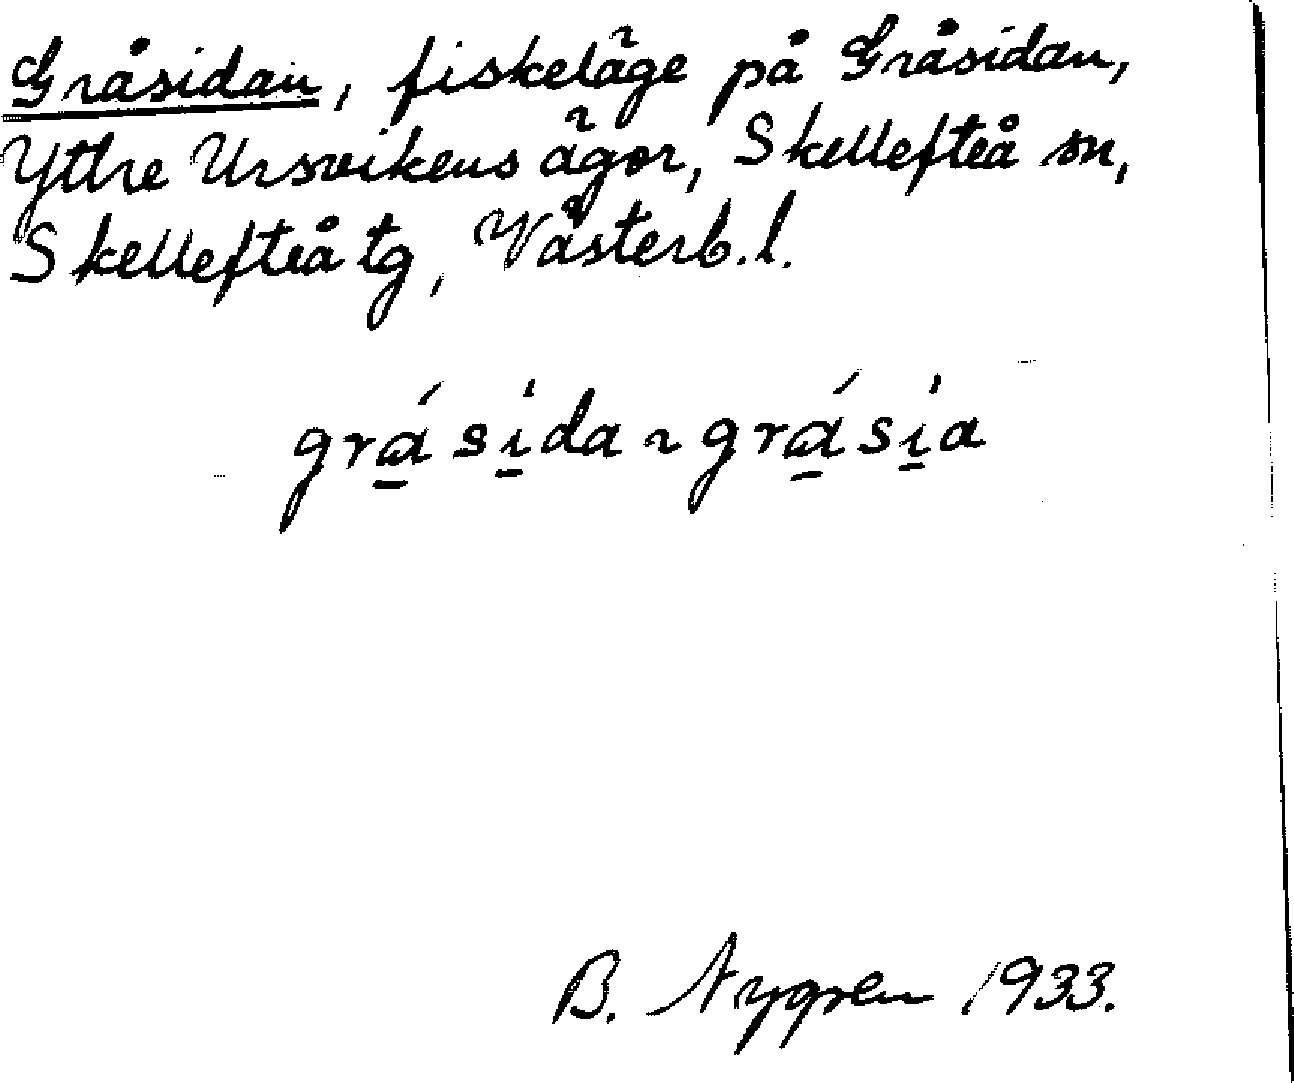 Gråsidan, fiskeläge på Gråsidan,
Yttre Ursvikens ägor, Skellefteå sn,
Skellefteå tg, Västerb. l.
grɑ̱́ si̱̍da ~ grɑ̱́ si̱̍a
B. Nygren 1933.